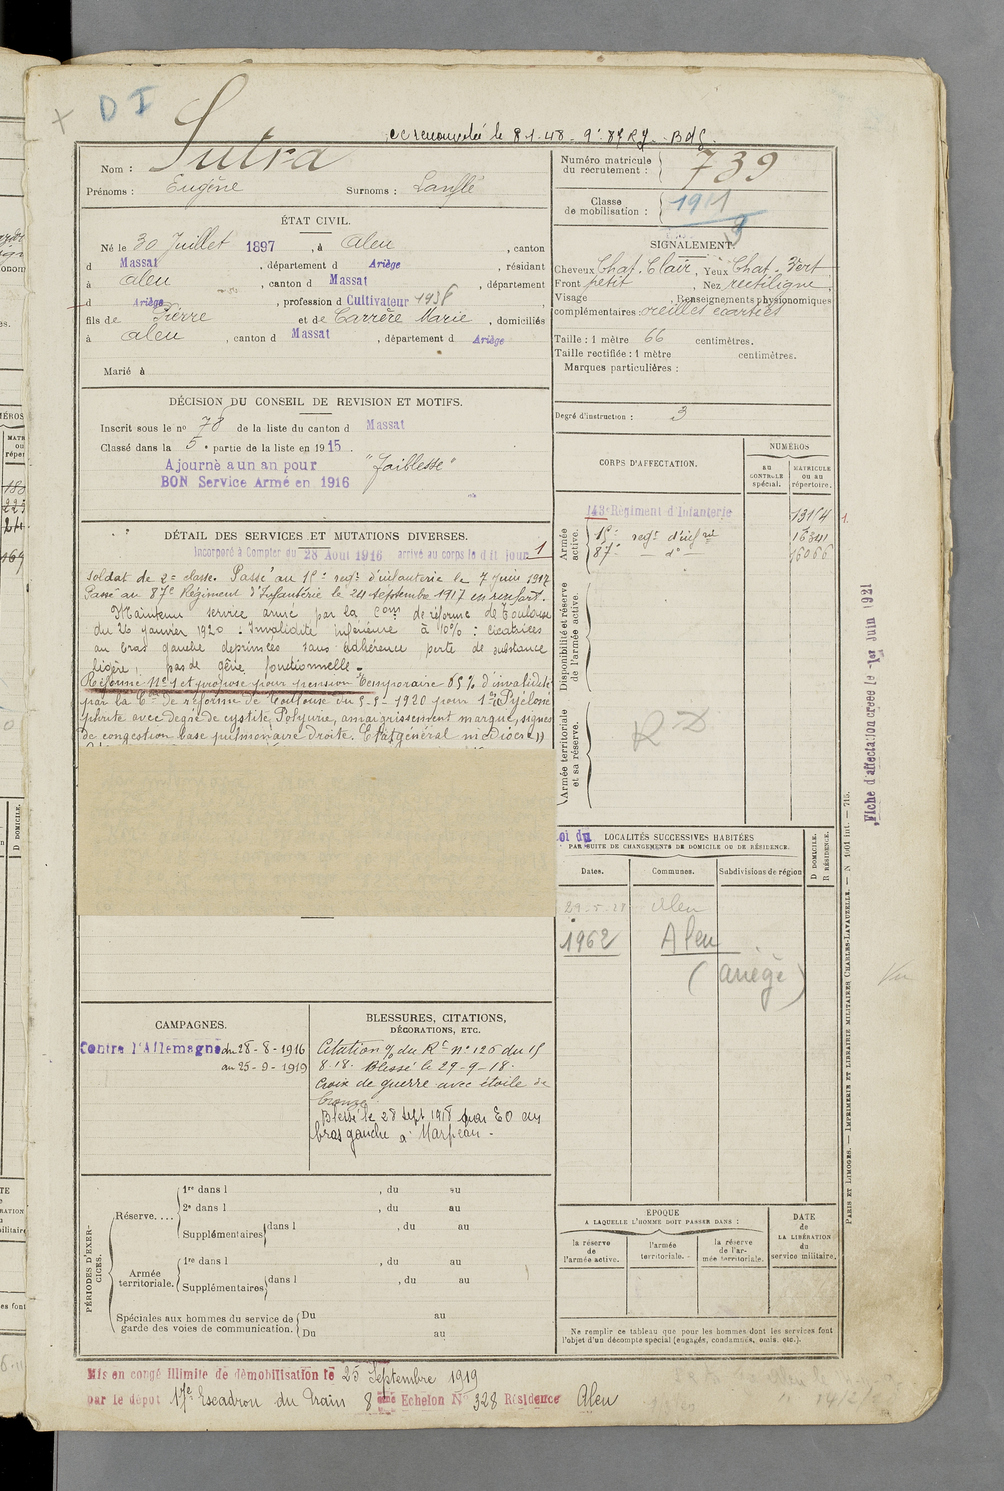 D I
le 8-1-48
Nom : Sutra
Prénoms : Eugène Surnoms :
Numéro matricule du recrutement : 739
Classe de mobilisation : 1911
ÉTAT CIVIL.
Né le 30 Juillet 1897, à Aleu, canton
d Massat, département d Ariège, résidant
à Aleu, canton d Massat, département
d Ariège, profession d Cultivateur 1936
fils de Pierre et de Carrère Marie, domiciliés
à Aleu, canton d Massat, département d Ariège
Marié à
SIGNALEMENT.
Cheveux Chat. Clair, Yeux Chat. Vert
Front petit, Nez rectiligne
Visage , Renseignements physionomiques
complémentaires : oreilles écartées
Taille : 1 mètre 66 centimètres.
Taille rectifiée : 1 mètre centimètres.
Marques particulières :
Degré d'instruction : 3
DÉCISION DU CONSEIL DE REVISION ET MOTIFS.
Inscrit sous le no 78 de la liste du canton d Massat
Classé dans la 5e partie de la liste en 1915.
Ajourné a un an pour "Faiblesse"
BON Service Armé en 1916
DÉTAIL DES SERVICES ET MUTATIONS DIVERSES.
Incorporé à Compter du 28 Août 1916 arrivé au corps le dit jour 1
soldat de 2e classe. Passé au 15e regt d'infanterie le 7 Juin 1917
Passé au 87e Régiment d'Infanterie le 24 Septembre 1917 en renfort.
Maintenu service armé par la Com de réforme de Toulouse
du 26 Janvier 1920 : Invalidité inférieure à 10% : cicatrices
au bras gauche déprimées sans adhérence perte de substance
légère, pas de gêne fonctionnelle -
Réformé No 1 et proposé pour pension temporaire 85% d'invalidité
par la Con de réforme de Toulouse du 5-5-1920 pour 1° Pyéloné
phrite avec degré de cystite, Polyurie, amaigrissement marqué, signes
de congestion base pulmonaire droite. Etat général médiocre
CORPS D'AFFECTATION.
NUMÉROS
AU CONTROLE spécial.
MATRICULE ou au répertoire.
Armée active.
143e Régiment d'Infanterie 13154
15e regt d'infrie 16341
87e do 16066
Disponibilité et réserve de l'armée active.
Armée territoriale et sa réserve.
R D
Fiche d'affectation créée le 1er Juin 1921
Loi du
LOCALITÉS SUCCESSIVES HABITÉES
PAR SUITE DE CHANGEMENTS DE DOMICILE OU DE RÉSIDENCE.
Dates. Communes. Subdivisions de région
D DOMICILE.
R RÉSIDENCE.
29-5-28 Aleu
1962 Aleu
(Ariège)
CAMPAGNES.
Contre l'Allemagne du 28-8-1916
au 25-9-1919
BLESSURES, CITATIONS, DÉCORATIONS, ETC.
Citation % du Rt no 126 du 15
8.18. Blessé le 29-9-18.
Croix de guerre avec étoile de
bronze
Blessé le 28 Sept 1918 par EO au
bras gauche à Marfeau.
PÉRIODES D'EXERCICES.
Réserve....
1re dans l , du au
2e dans l , du au
Supplémentaires dans l , du au
Armée territoriale.
1re dans l , du au
Supplémentaires dans l , du au
Spéciales aux hommes du service de garde des voies de communication.
Du au
Du au
EPOQUE
A LAQUELLE L'HOMME DOIT PASSER DANS :
la réserve de l'armée active.
l'armée territoriale.
la réserve de l'armée territoriale.
DATE de LA LIBÉRATION du service militaire.
Ne remplir ce tableau que pour les hommes dont les services font
l'objet d'un décompte spécial (engagés, condamnés, omis, etc.).
PARIS ET LIMOGES. — IMPRIMERIE ET LIBRAIRIE MILITAIRES CHARLES-LAVAUZELLE. — N 1601 int. — 715.
Mis en congé illimité de démobilisation le 25 Septembre 1919
par le dépôt 17e Escadron du Train 8 ème Echelon No 328 Résidence Aleu